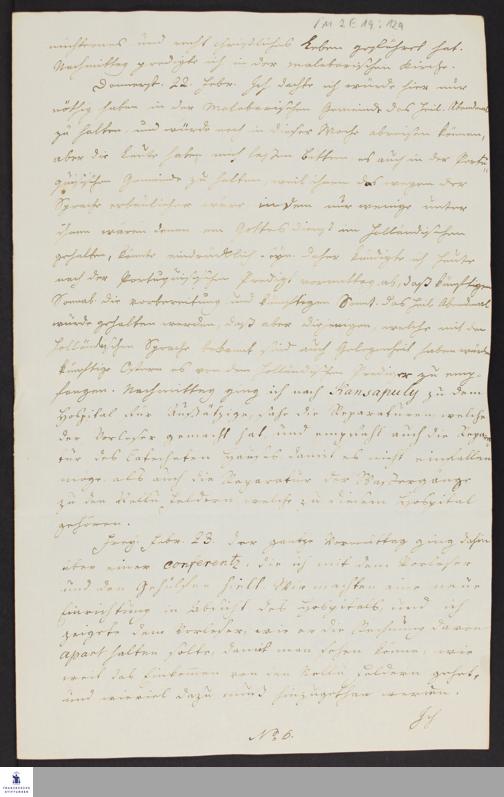 1 M 2 E 19 : 12a
nüchternes und recht christliches Leben geführet hat.
Nachmittag predigte ich in der malabarischen Kirche.
Donnerst. 22. Febr. Ich dachte ich würde hier nur
nöthig haben in der Malabarischen Gemeinde das heil. Abendmal
zu halten, und würde noch in dieser Woche abreisen können,
aber die Leute haben mich laßen bitten, es auch in der Portu-
guisischen Gemeinde zu halten, weil ihnen das wegen der
Sprache erbaulicher wäre, indem nur wenige unter
ihnen wären denen ein Gottesdienst im Holländischen
gehalten, könte eindrücklich seyn. daher kündigte ich heute
nach der Portuguisischen Predigt vormittag ab, daß künftigen
Sonnab. die vorbereitung und künftigen Sonnt. das heil. Abendmal
würde gehalten werden, daß aber diejenigen, welche mit der
Holländischen Sprache bekannt sind auch Gelegenheit haben würden
künftige Ostern es von dem Holländischen Prediger zu emp-
fangen. Nachmittag ging ich nach Kansapuly zu dem
Hospital für Aussätzige, sahe die Reparaturen welche
der Vorleser gemacht hat und empfahl auch die Repara
tur des Catecheten Hauses damit es nicht einfallen
möge, als auch die Reparatur der Wassergänge
zu den Nellu Feldern welche zu diesem Hospital
gehören.
Freyt. Febr. 23. der gantze Vormittag ging dahin
über einer Conferentz, die ich mit dem Vorleser
und den Gehülfen hielt. Wir machten eine neue
Einrichtung in Absicht des Hospitals, und ich
zeigete dem Vorleser, wie er die Rechnung davon
apart halten solte, damit man sehen könne, wie
weit das Einkomen von den Nellu Feldern gehet,
und wieviel dazu muß hinzugethan werden.
Ich
No. 6.
FRANCKESCHE
STIFTUNGEN